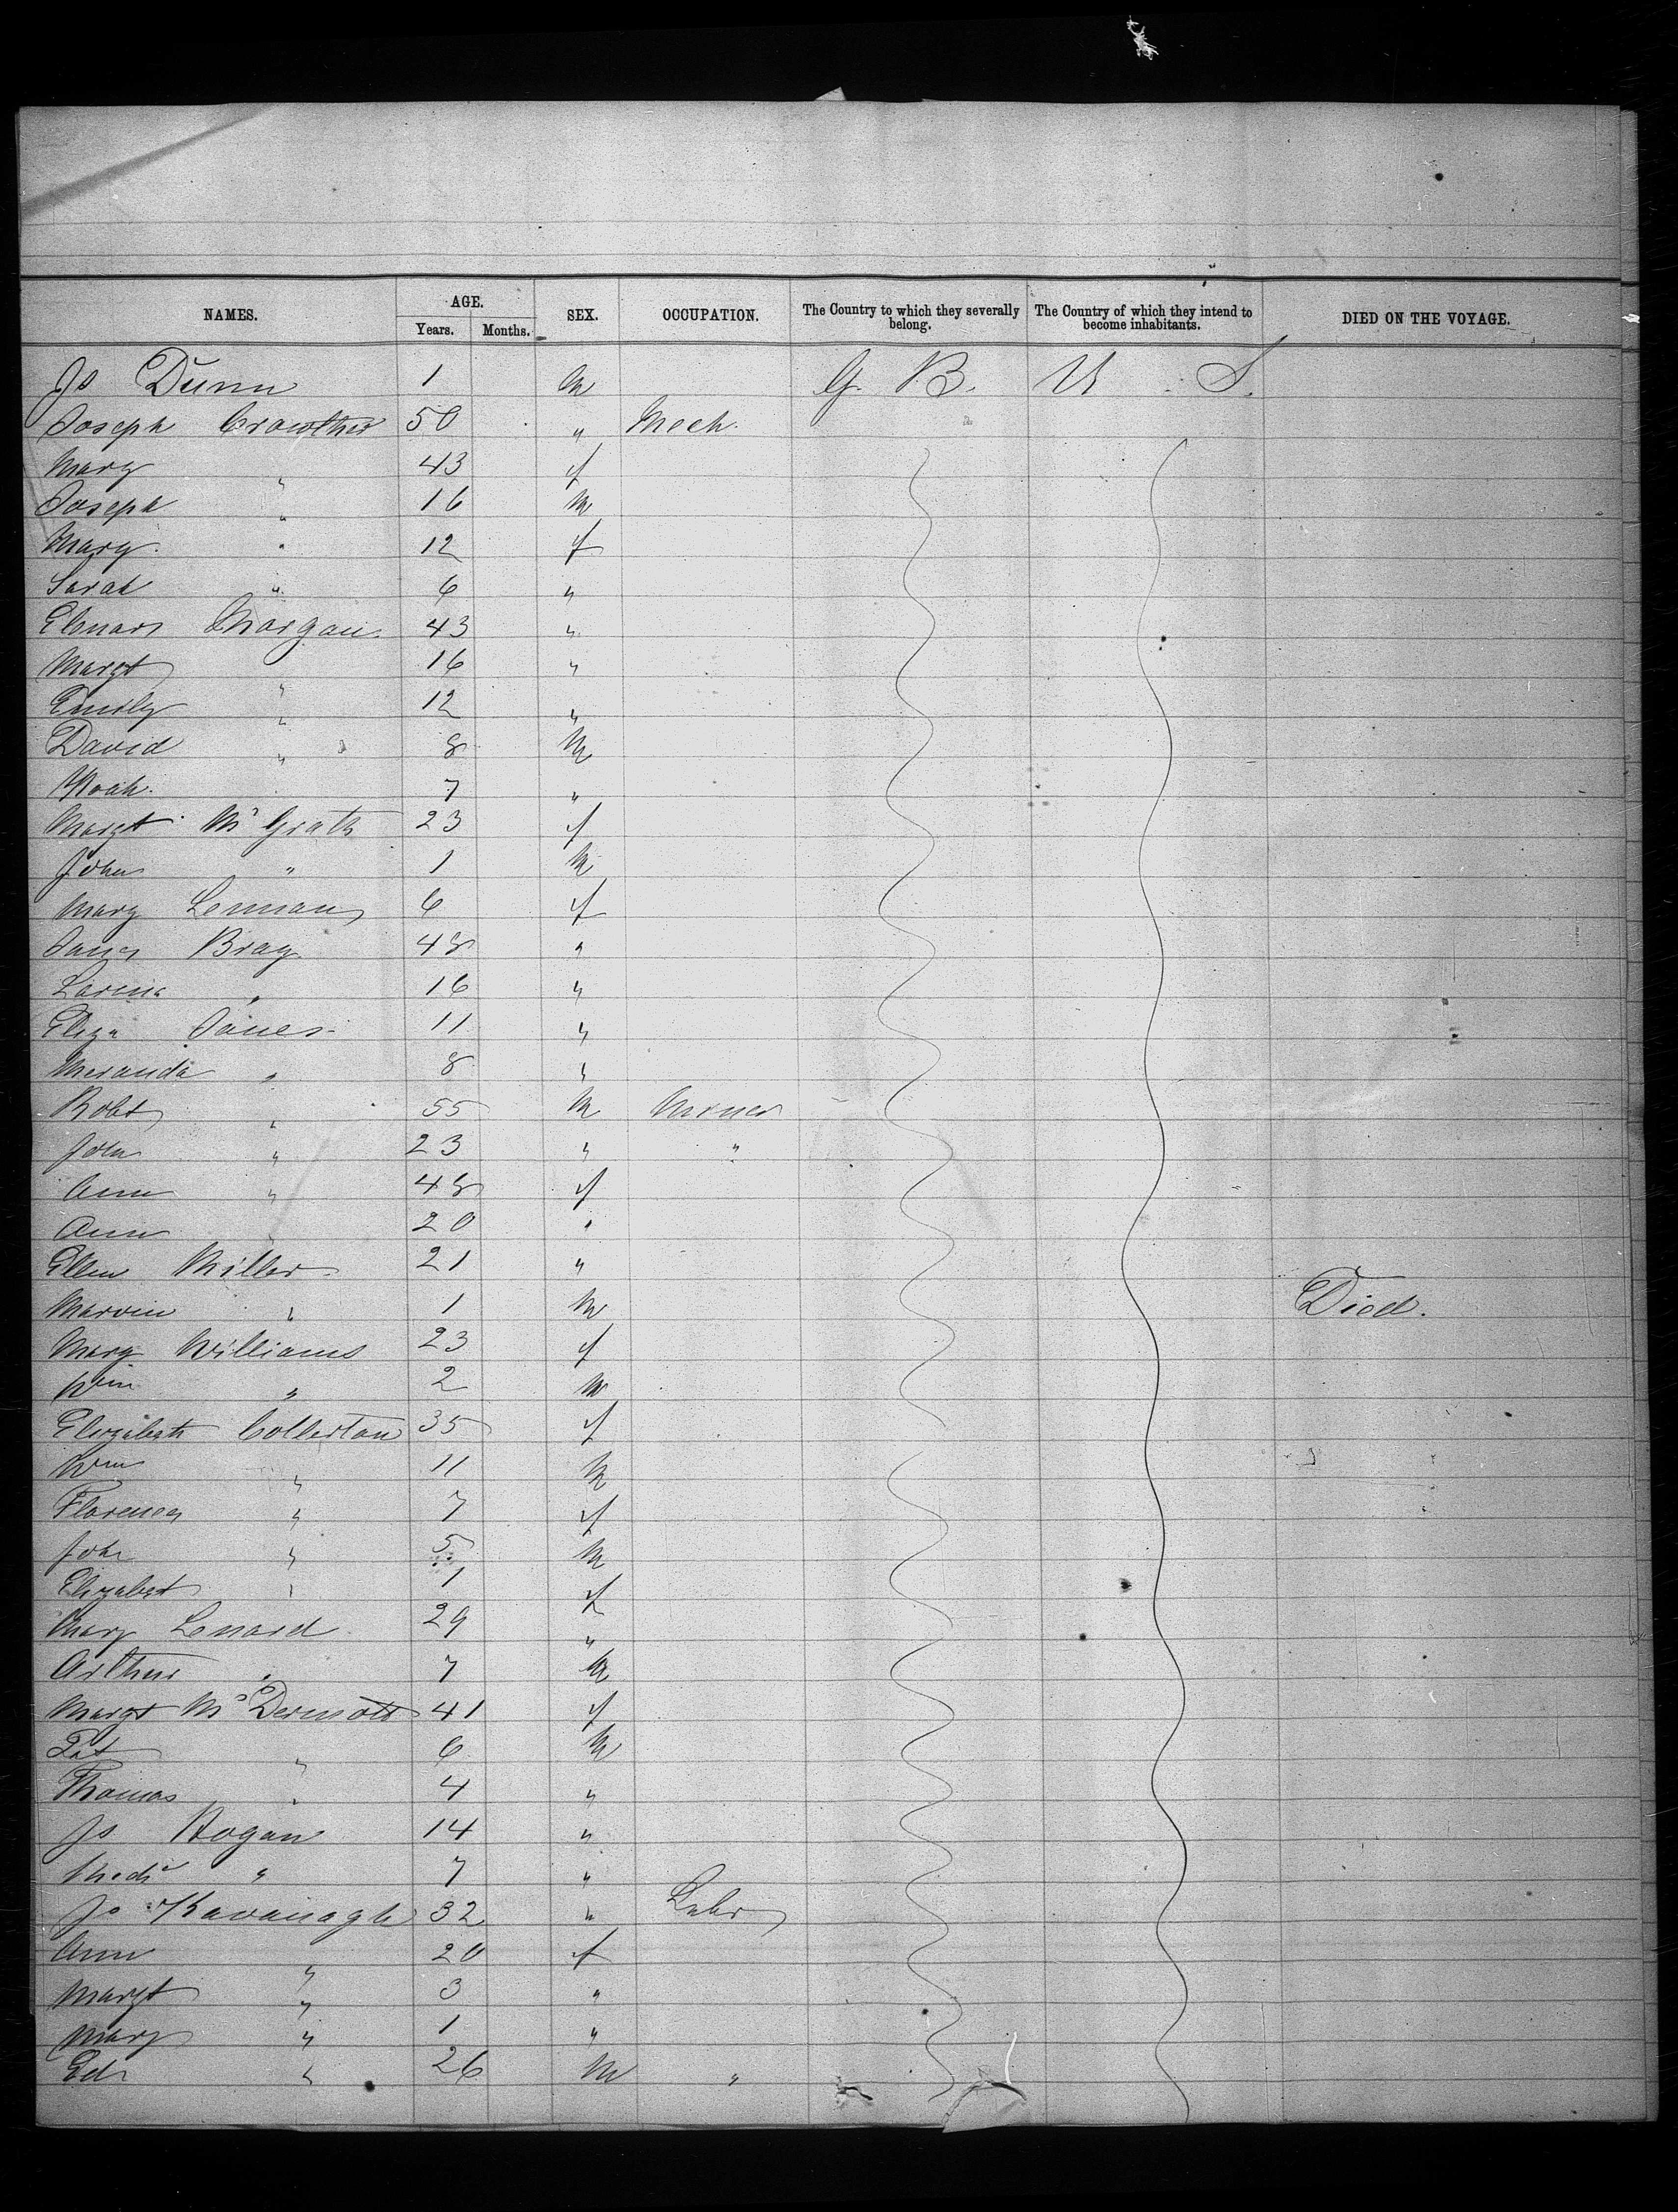 NAMES. AGE. Years. Months. SEX. OCCUPATION. The Country to which they severally belong. The Country of which they intend to become inhabitants. DIED ON THE VOYAGE.
Js Dunn 1 M G. B. U S.
Joseph Crowther 50 " Mech.
Mary " 43 f
Joseph " 16 M
Mary " 12 f
Sarah " 6 "
Elenor Morgan 43 "
Margt " 16 "
Emily " 12 "
David " 8 M
Noah 7 "
Margt McGrath 23 f
John " 1 M
Mary Lennan 6 f
Jane Bray 48 "
Lavina " 16 "
Eliza Jones 11 "
Meranda " 8 "
Robt " 55 M Miner
John " 23 " "
Ann " 48 f
Ann " 20 "
Ellen Miller 21 "
Marvin " 1 M Died.
Mary Williams 23 f
Wm " 2 M
Elizabeth Collerton 35 f
Wm " 11 M
Florence " 7 f
John " 5 M
Elizabet " 1 f
Mary Lenard 29 "
Arthur " 7 M
Margt McDermott 41 f
Pat " 6 M
Thomas " 4 "
Js Hogan 14 "
" 7 "
Js Kavanagh 32 " Labr
Ann " 20 f
Margt " 3 "
Mary " 1 "
Ed " 26 M "